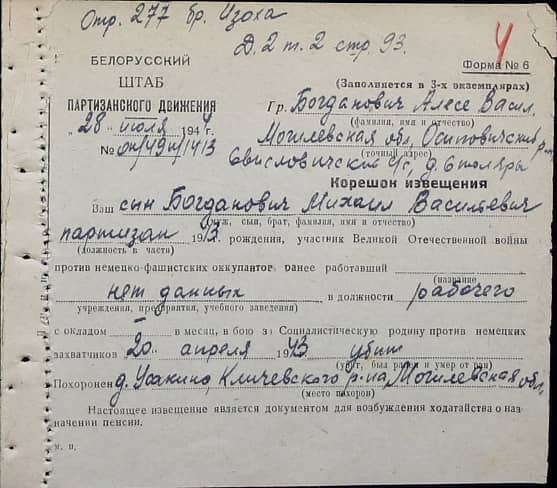 Отр. 277 бр. Изоха
Д. 2 т. 2 стр. 93.
4
БЕЛОРУССКИЙ
ШТАБ
ПАРТИЗАНСКОГО ДВИЖЕНИЯ
„28" июля 1944 г.
Форма № 6
(Заполняется в 3-х экземплярах)
Гр. Богданович Алесе Васил.
(фамилия, имя и отчество)
Могилевская обл, Осиповичский р-н
(точный адрес)
Свислович с/с, д.
Корешок извещения
Ваш сын Богданович Михаил Васильевич
(муж, сын, брат, фамилия, имя и отчество)
партизан 1913 рождения, участник Великой Отечественной войны
(должность в части)
против немецко-фашистских оккупантов ранее работавший
(название
нет данных в должности рабочего
учреждения, предприятия, учебного заведения)
с окладом — в месяц, в бою за Социалистическую родину против немецких
захватчиков „20" апреля 1943 убит
(убит, был ранен и умер от ран)
Похоронен д. Усакино, Кличевского р-на, Могилевская обл
(место похорон)
Настоящее извещение является документом для возбуждения ходатайства о наз-
начении пенсии.
м. п.